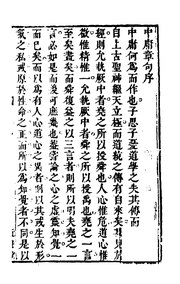 中庸章句序
中庸何為而作也子思子憂道學之失其傳而作也蓋
自上古聖神繼天立極而道統之傳有自來矣其見於
經則允執厥中者堯之所以授舜也人心惟危道心惟
微惟精惟一允執厥中者舜之所以授禹也堯之一言
至矣盡矣而舜復益之以三言者則所以明夫堯之一
言必如是而後可庶幾也蓋嘗論之心之虛靈知覺一
而已矣而以為有人心道心之異者則以其或生於形
氣之私或原於性命之正而所以為知覺者不同是以